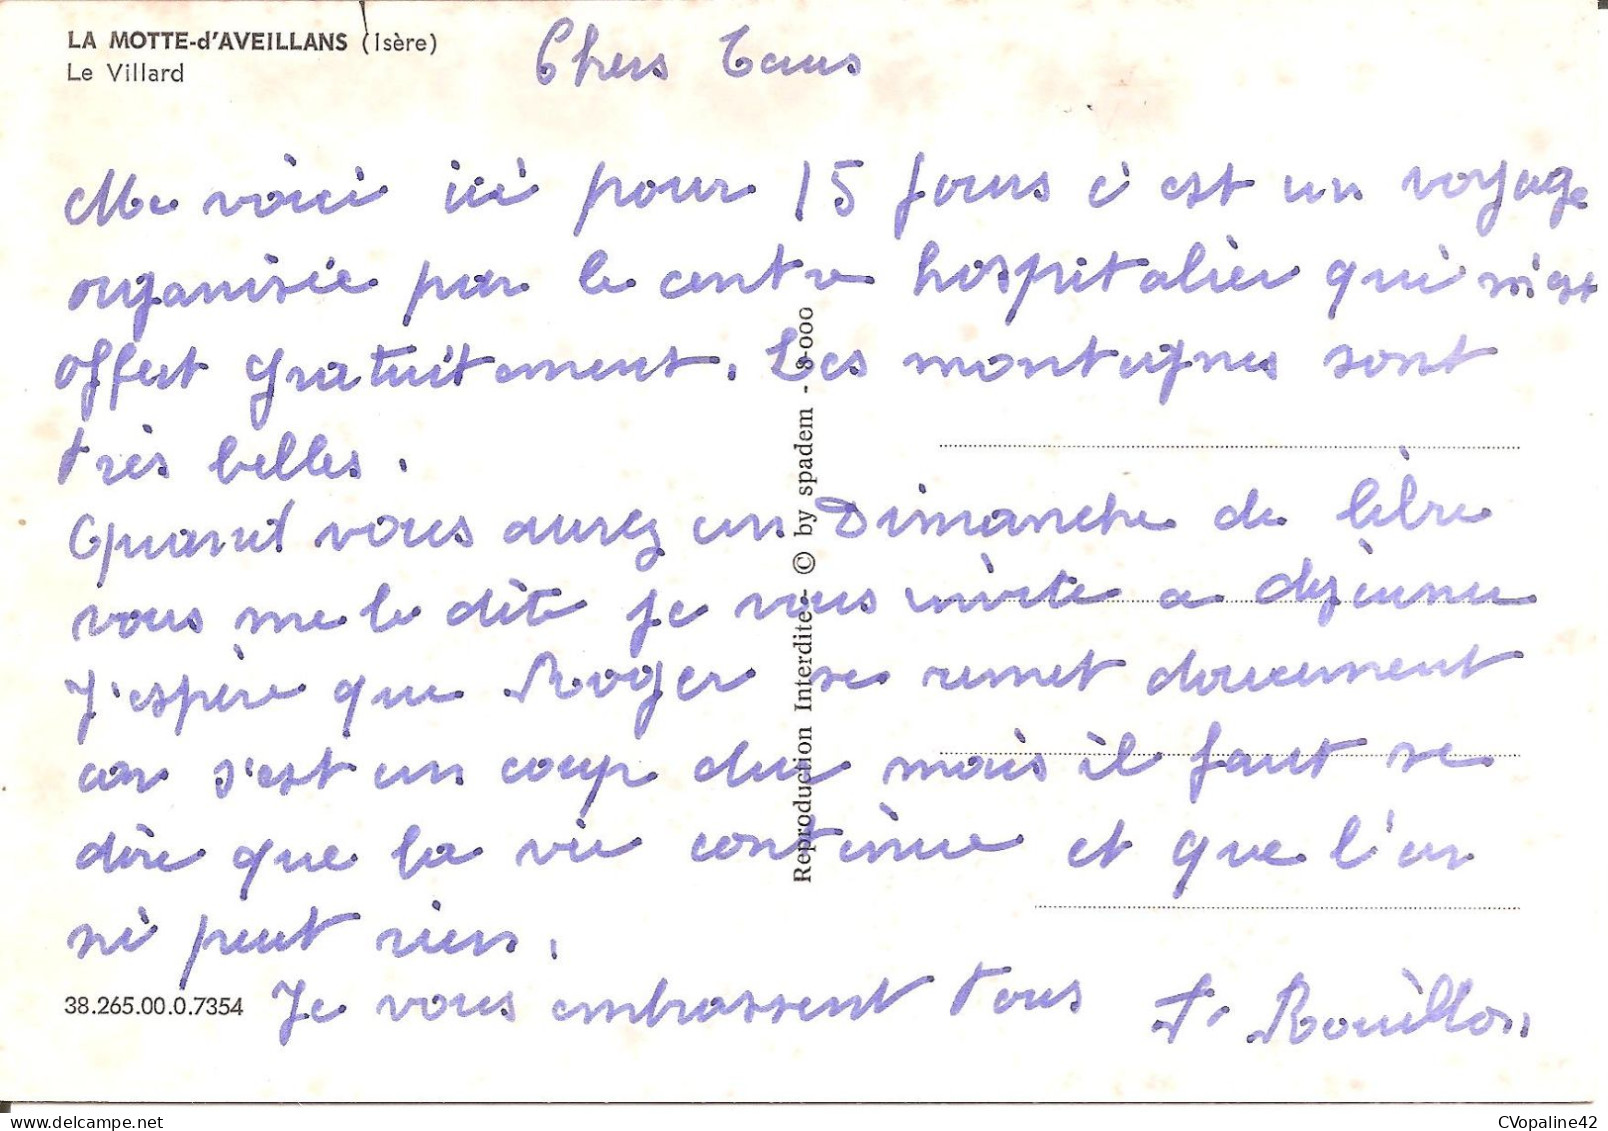 LA MOTTE-d'AVEILLANS (Isère)
Le Villard
Chers Tous
Me voici ici pour 15 jours c'est un voyage
organisée par le centre hospitalier qui m'est
offert gratuitement. Les montagnes sont
très belles.
Quand vous aurez un Dimanche de libre
vous me le dite je vous invite a dejeuner
J'espère que Roger se remet doucement
car s'est un coup dur mais il faut se
dire que la vie continue et que l'on
ni peut rien.
Je vous embrassent tous
F. Rouillon
38.265.00.0.7354
Reproduction Interdite - © by spadem - 8-000
CVopaline42